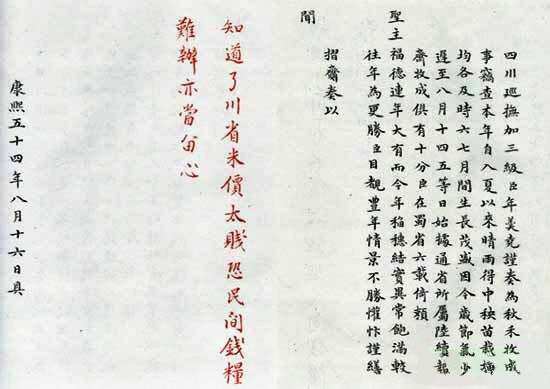 四川巡撫加三級臣年羹堯謹奏為秋禾收成
事竊查本年自入夏以來晴雨得中秧苗栽插
均各及時六七月間生長茂盛因今歲節氣少
遲至八月十四五等日始據通省所屬陸續報
齊收成俱有十分臣在蜀省六載倚賴
聖主福德連年大有而今年稻穗結實異常飽滿較
往年為更勝臣目覩豐年情景不勝懽忭謹繕
摺齎奏以
聞
知道了川省米價太賤恐民間錢糧
難辦亦當留心
康熙五十四年八月十六日具